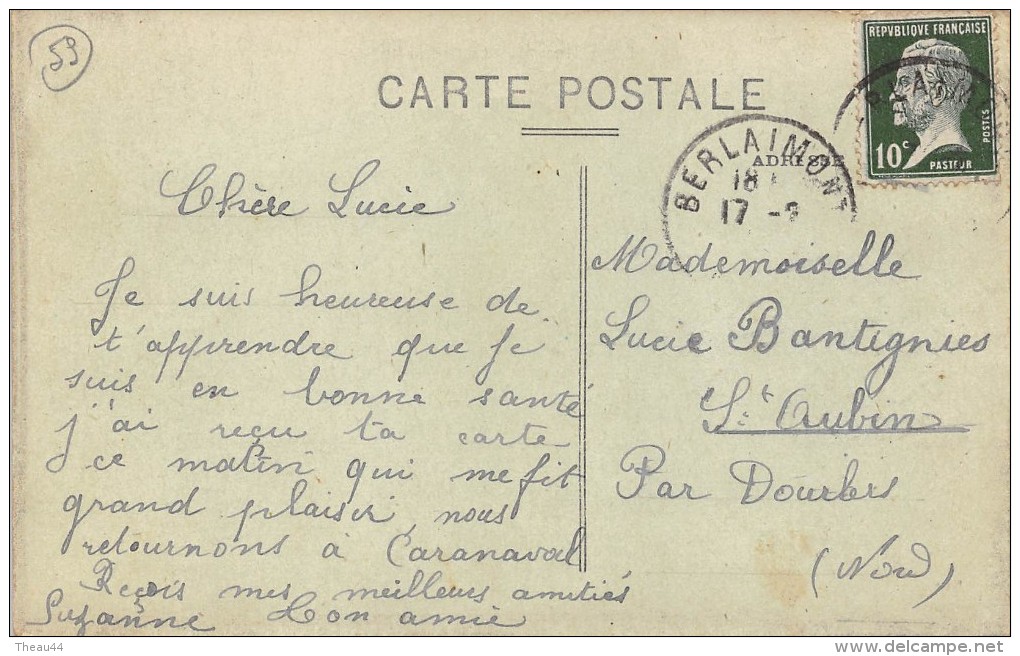 59
REPVBLIQUE FRANÇAISE
POSTES
10 c
PASTEUR
CARTE POSTALE
BERLAIMONT
18
17 -
ADRESSE
Chère Lucie
Je suis heureuse de
t'apprendre que je
suis en bonne santé
j'ai reçu ta carte
ce matin qui me fit
grand plaisir, nous
retournons à Caranaval
Reçois mes meilleurs amitiés
Suzanne ton amie
Mademoiselle
Lucie Bantignies
St Aubin
Par Dourlers
(Nord)
Theau44
delcampe.net